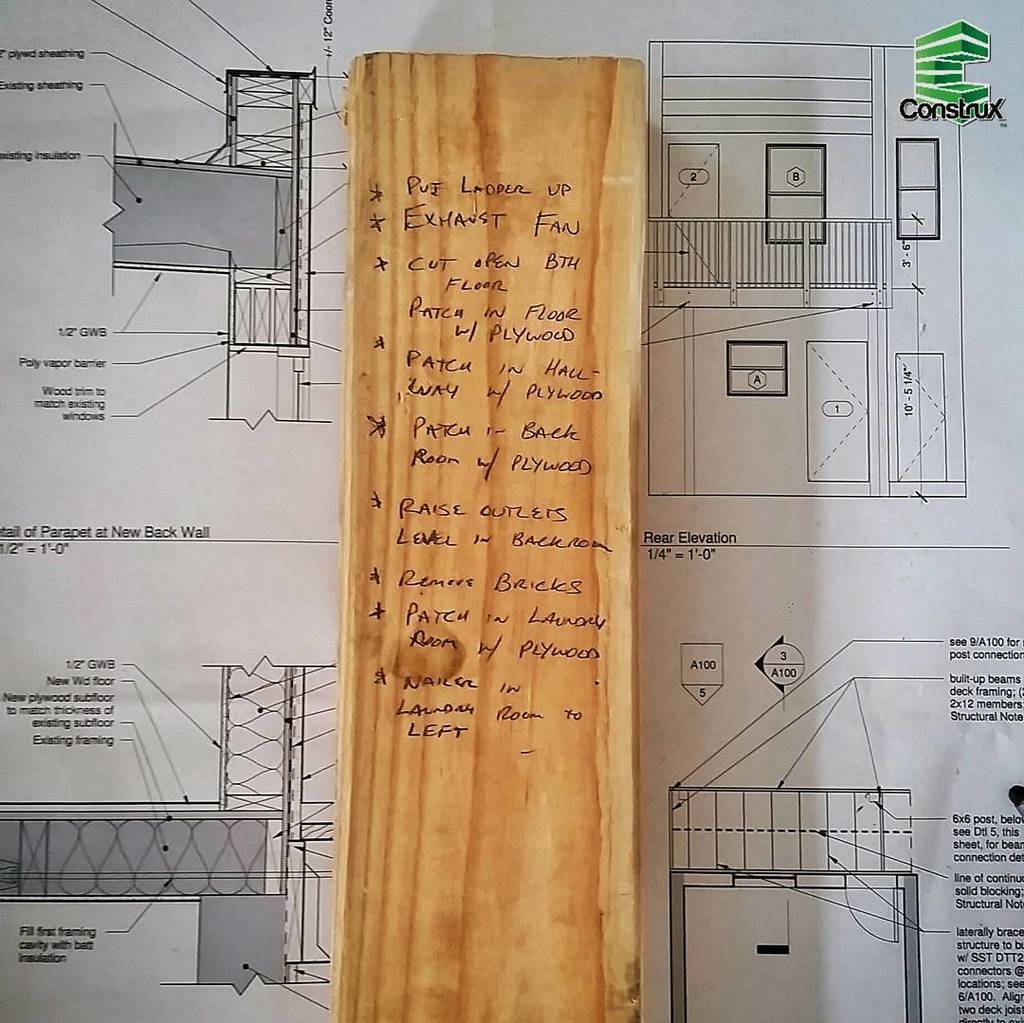 Construx
/2" plywd sheathing
Existing sheathing
existing insulation
+/- 12" Coor
1/2" GWB
Poly vapor barrier
Wood trim to
match existing
windows
tail of Parapet at New Back Wall
1/2" = 1'-0"
1/2" GWB
New Wd floor
New plywood subfloor
to match thickness of
existing subfloor
Existing framing
Fill first framing
cavity with batt
insulation
* PUT LADDER UP
* EXHAUST FAN
* CUT OPEN BTH
FLOOR
PATCH IN FLOOR
W/ PLYWOOD
* PATCH IN HALL-
WAY W/ PLYWOOD
* PATCH IN BACK
ROOM W/ PLYWOOD
* RAISE OUTLETS
LEVEL IN BACKROOM
* REMOVE BRICKS
* PATCH IN LAUNDRY
ROOM W/ PLYWOOD
* NAILER IN
LAUNDRY ROOM TO
LEFT
2
B
3' - 6"
A
1
10' - 5 1/4"
Rear Elevation
1/4" = 1'-0"
A100
5
3
A100
see 9/A100 for
post connection
built-up beams
deck framing; (
2x12 members;
Structural Note
6x6 post, below
see Dtl 5, this
sheet, for bea
connection det
line of continu
solid blocking;
Structural Not
laterally brace
structure to bu
w/ SST DTT2
connectors @
locations; see
6/A100. Alig
two deck joist
directly to exi